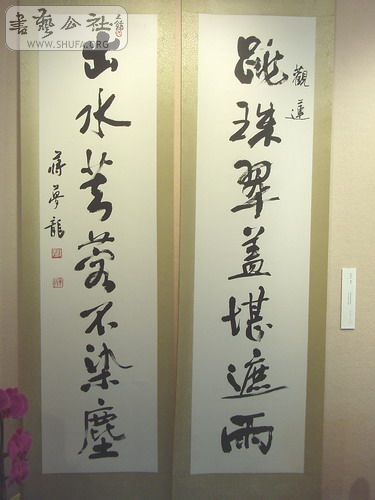 觀蓮
跳珠翠盖堪遮雨
出水芙蓉不染塵
蔣夢龍
書藝公社
WWW.SHUFA.ORG